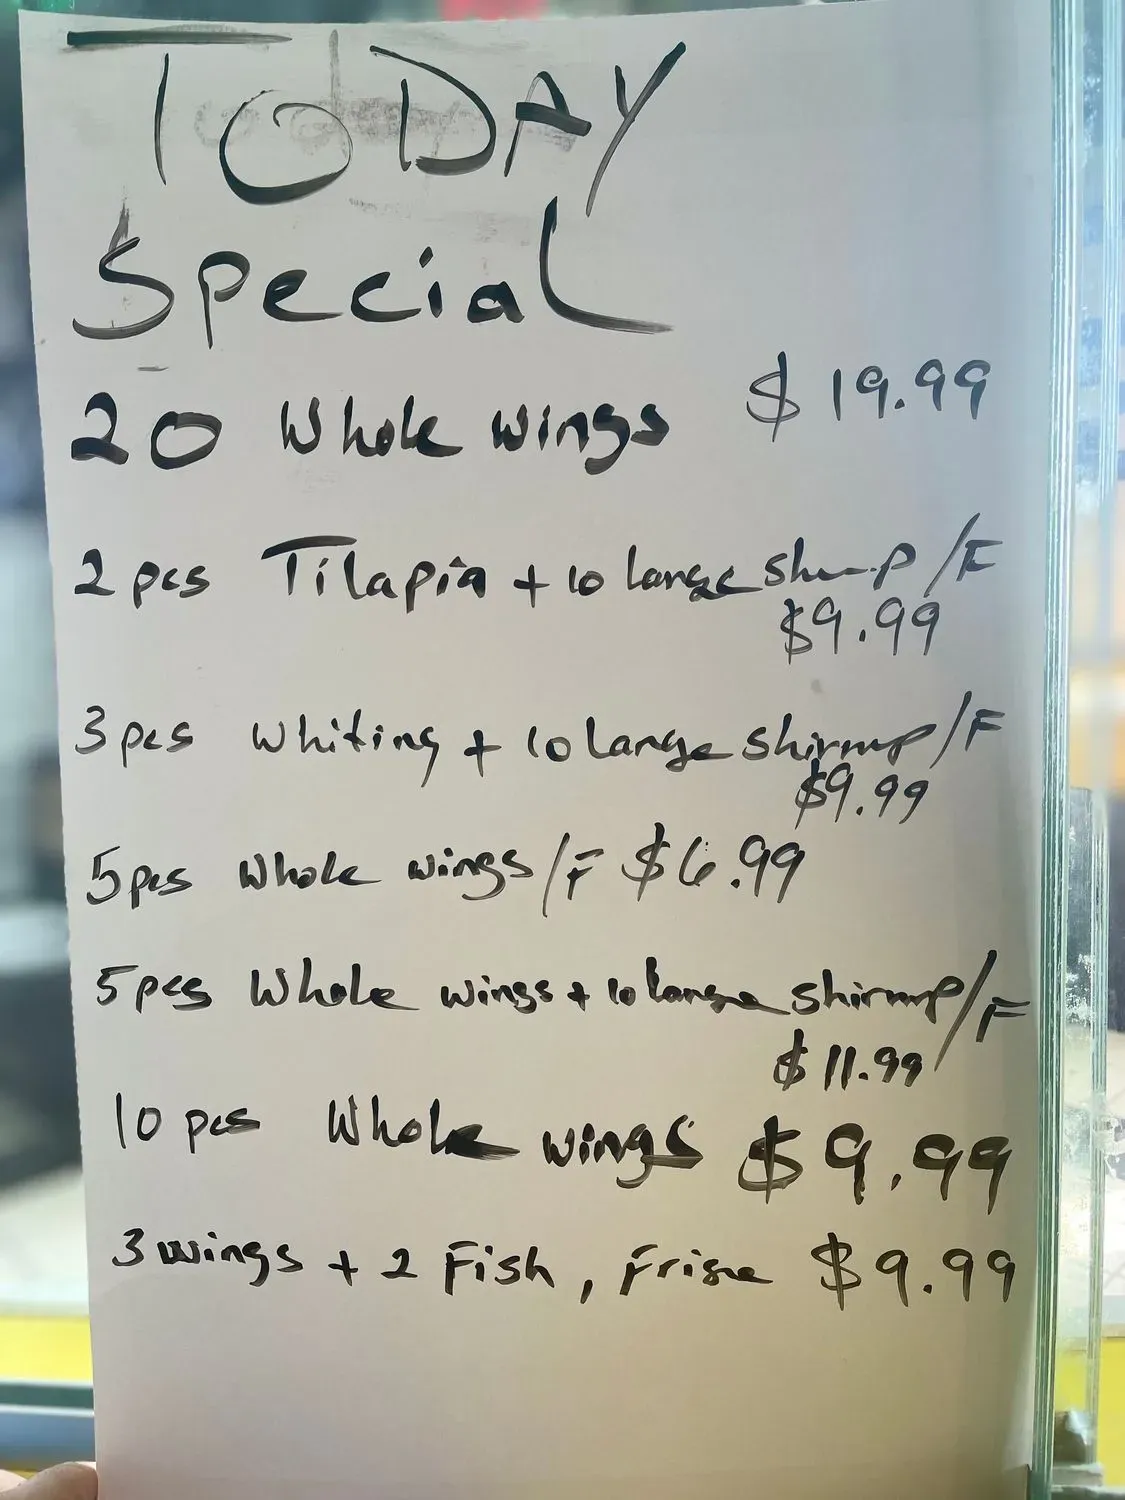 TODAY
Special
20 Whole wings $19.99
2 pcs Tilapia + 10 large shrmp /F
$9.99
3 pcs Whiting + 10 Large shirmp /F
$9.99
5 pcs Whole wings /F $6.99
5 pcs Whole wings + 10 large shirmp /F
$11.99
10 pcs Whole wings $9.99
3 wings + 2 Fish, Frise $9.99